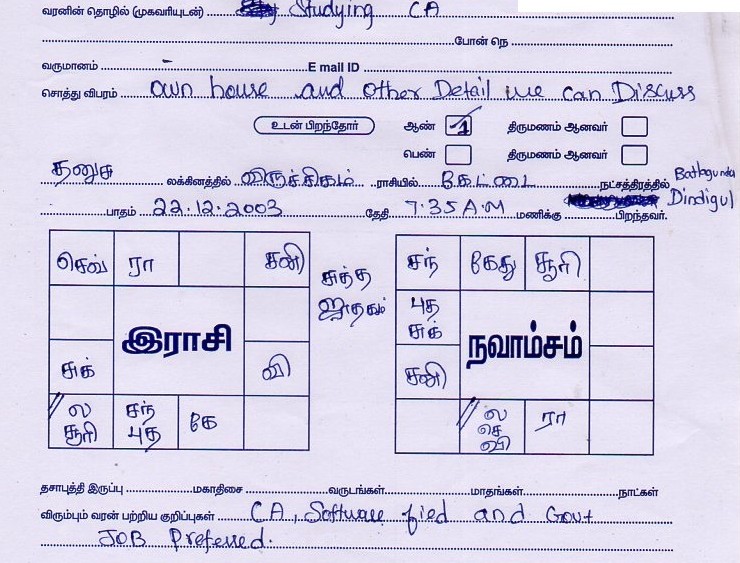 வரனின் தொழில் (முகவரியுடன்) Studying CA
போன் நெ
வருமானம் - E mail ID
சொத்து விபரம் own house and other Detail we can Discuss
உடன் பிறந்தோர் ஆண் 1 திருமணம் ஆனவர்
பெண் திருமணம் ஆனவர்
தனுசு லக்கினத்தில் விருச்சிகம் ராசியில் கேட்டை நட்சத்திரத்தில் Batlagundu
பாதம் 22.12.2003 தேதி 7.35 A.M மணிக்கு Dindigul பிறந்தவர்.
செவ் ரா சனி சுத்த ஜாதகம் சந் கேது சூரி
புத சுக்
இராசி நவாம்சம்
சுக் வி சனி
ல சூரி சந் புத கே ல செ வி ரா
தசாபுத்தி இருப்பு மகாதிசை வருடங்கள் மாதங்கள் நாட்கள்
விரும்பும் வரன் பற்றிய குறிப்புகள் CA, Software fied and Govt
JOB Preferred.